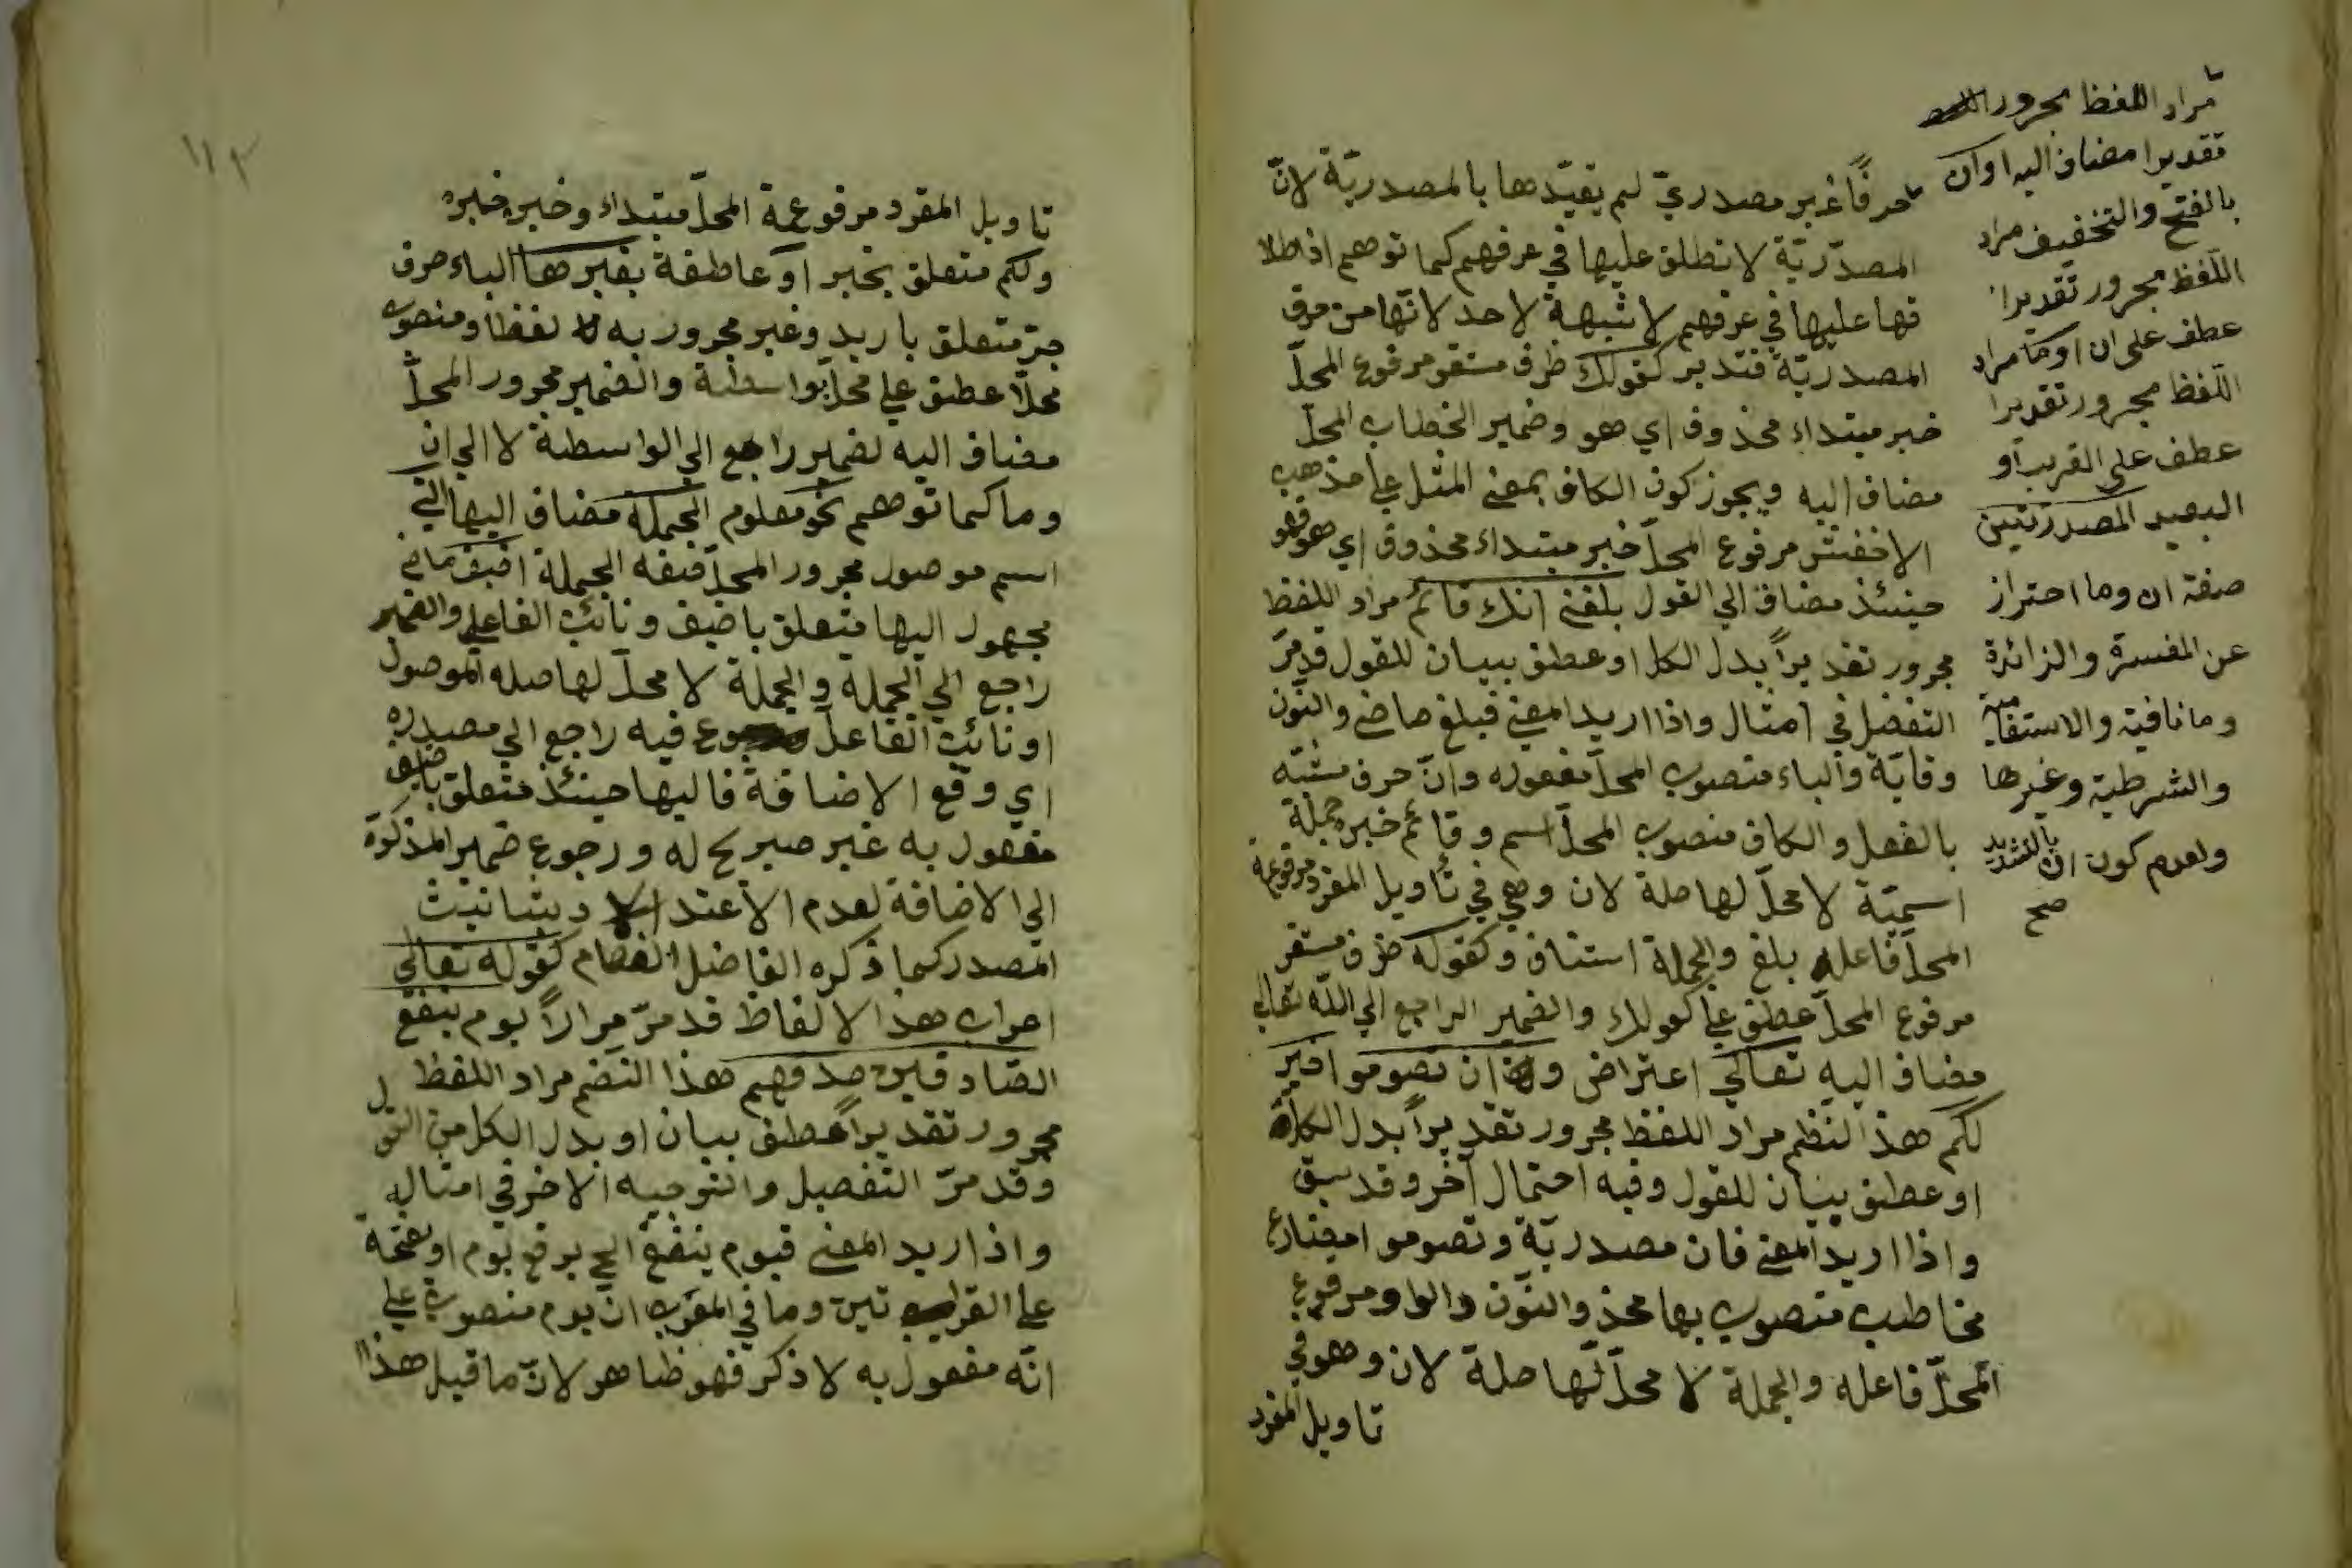 حرفًا غير مصدريّ لم يقيّدها بالمصدريّة لانّ
المصدّريّة لا تطلق عليها في عرفهم كما توهم اذ اطلا
قها عليها في عرفهم لا شبهة لاحد لانّها من حرف
المصدريّة فتدبر كقولك ظرف مستقر مرفوع المحلّ
خبر مبتداء محذوف اي هو وضمير الخطاب المحلّ
مضاف اليه ويجوز كون الكاف بمعنى المثل على مذهب
الاخفش مرفوع المحلّ خبر مبتداء محذوف اي هو فهو
حينئذ مضاف الى القول بلغني انك قائم مراد اللفظ
مجرور تقديراً بدل الكل او عطف بيان للقول قد مرّ
التفضل في امثال واذا اريد المعنى فبلغ ماض والنّون
وقايّة والياء منصوب المحلّ مفعوله وانّ حرف مشبّه
بالفعل والكاف منصوب المحلّ اسم وقائم خبره جملة
اسميّة لا محلّ لها صلة لان وهي في تأويل المفرد مرفوعة
المحلّ فاعله بلغ والجملة استئناف وكقوله ظرف مستقر
مرفوع المحلّ عطف على كقولك والضمير الراجع الى اللّه تعالى
مضاف اليه تعالى اعتراض وان تصوموا خير
لكم هذ النظم مراد اللفظ مجرور تقديراً بدل الكل
او عطف بيان للقول وفيه احتمال آخر وقد سبق
واذا اريد المعنى فان مصدريّة وتصوموا مضارع
مخاطب منصوب بها محذ والنّون والواو مرفوع
المحلّ فاعله والجملة لا محلّ لها صلة لان وهو في
تاويل المفرد
مراد اللفظ مجرور
تقديرا مضاف اليه او ان
بالفتح والتخفيف مراد
اللفظ مجرور تقديرا
عطف على ان او ما مراد
اللفظ مجرور تقديرا
عطف على القريب او
البعيد المصدريتين
صفة ان وما احتراز
عن المفسرة والزائدة
وما نافية والاستفهامية
والشرطية وغيرها
ولعدم كون ان بالتشديد
صح
١١٢
تاويل المفرد مرفوعة المحلّ مبتداء وخير خبره
ولكم متعلق بخير او عاطفة بغيرها الباء حرف
جرّ متعلق باريد وغير مجرور به لفظا ومنصوب
محلّا عطف على محلّ بواسطة والضمير مجرور المحلّ
مضاف اليه لضمير راجع الى الواسطة لا الى ان
وما كما توهم نحو معلوم الجملة مضاف اليها التي
اسم موصول مجرور المحلّ صفة الجملة اضيف ماضي
مجهول اليها متعلق باضيف ونائب الفاعل والضمير
راجع الى الجملة والجملة لا محلّ لها صلة الموصول
او نائب الفاعل فيه راجع الى مصدره
اي وقع الاضافة فاليها حينئذ متعلق باضيف
مفعول به غير صريح له ورجوع ضمير المذكورة
الى الاضافة لعدم الاعتداد بتانيث
المصدر كما ذكره الفاضل العصام كقوله تعالى
اعراب هذا الالفاظ قد مرّ مراراً يوم ينفع
الصّادقين صدقهم هذا النّظم مراد اللفظ
مجرور تقديراً عطف بيان او بدل الكل من القول
وقد مرّ التفصيل والتوجيه الاخر في امثاله
واذا اريد المعنى فيوم ينفع الخ برفع يوم او بفتحه
على القرائتين وما في المعرب انّ يوم منصوب على
انّه مفعول به لا ذكر فهو ظاهر لانّ ما قبل هذا